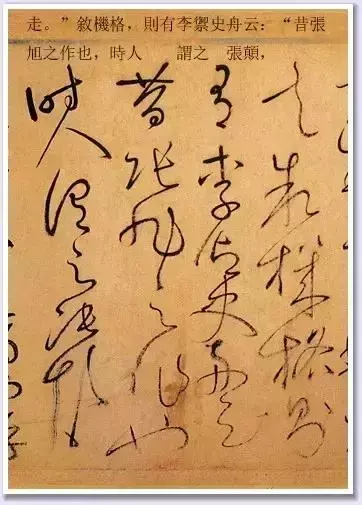 走。”敘機格，則有李禦史舟云：“昔張
旭之作也，時人 謂之 張顛，
走敘機格則
有李御史舟云
昔張旭之作也
時人謂之張顛